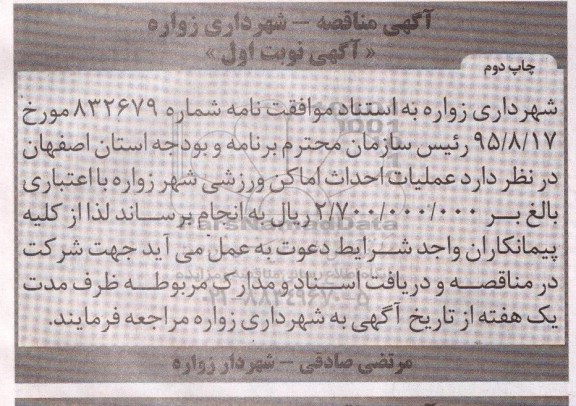 آگهی مناقصه – شهرداری زواره
« آگهی نوبت اول »
چاپ دوم
شهرداری زواره به استناد موافقت نامه شماره ۸۳۲۶۷۹ مورخ
۹۵/۸/۱۷ رئیس سازمان محترم برنامه و بودجه استان اصفهان
در نظر دارد عملیات احداث اماکن ورزشی شهر زواره با اعتباری
بالغ بر ۲/۷۰۰/۰۰۰/۰۰۰ ریال به انجام برساند لذا از کلیه
پیمانکاران واجد شرایط دعوت به عمل می آید جهت شرکت
در مناقصه و دریافت اسناد و مدارک مربوطه ظرف مدت
یک هفته از تاریخ آگهی به شهرداری زواره مراجعه فرمایند.
مرتضی صادقی – شهردار زواره